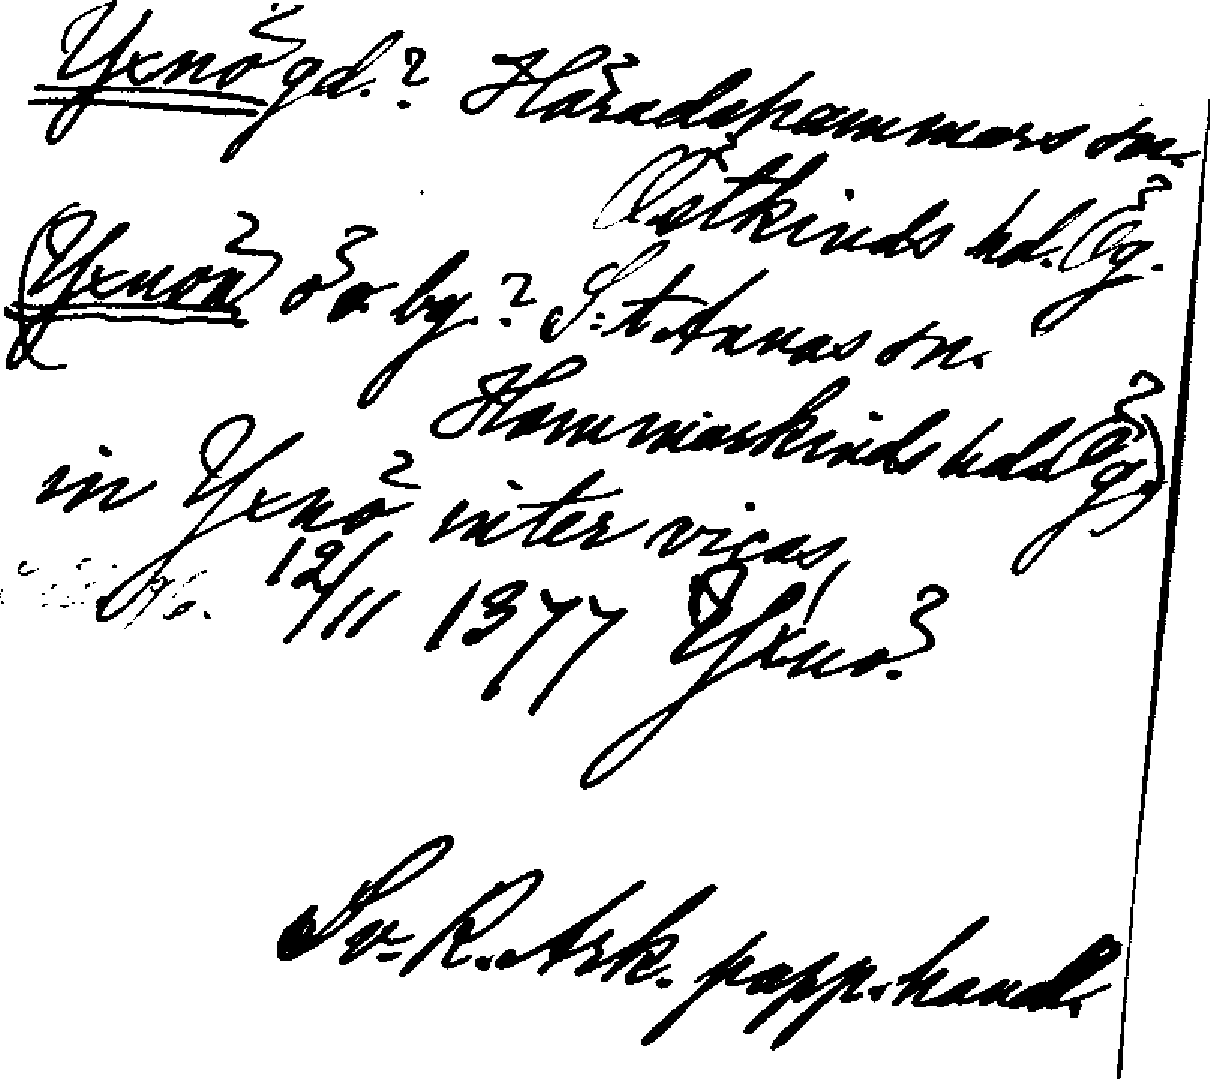 Yxnö gd.? Häradshammars sn.
Östkinds hd. Ög.
(Yxnön ö o. by.? S:t Annas sn.
Hammarkinds hd Ög.)
in Yxnö inter vicas
12/11 1377 Yxnö.
Sv. R. Ark. papp. hand.